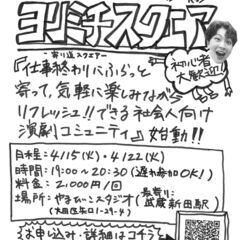 ヨリミチスクエア
~寄り道スクエアー
初心者
大歓迎!
『仕事終わりにふらっと
寄って、気軽に楽しみながら
リフレッシュ!!できる社会人向け
演劇コミュニティ』始動!!
日程: 4/15(火)・4/22(火)
時間: 19:00〜20:30 (遅れ参加OK!)
料金: 2,000円/回
場所: やまびこスタジオ
最寄り:
武蔵新田駅
(大田区矢口1-29-4)
お申し込み・詳細はコチラ